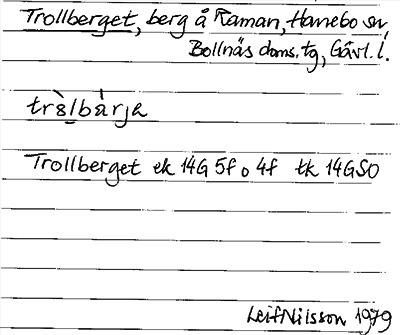 Trollberget, berg å Raman, Hanebo sn
Bollnäs doms. tg, Gävl. l.
trə̀lbárjə
Trollberget ek 14G 5f o 4f tk 14GSO
Leif Nilsson 1979